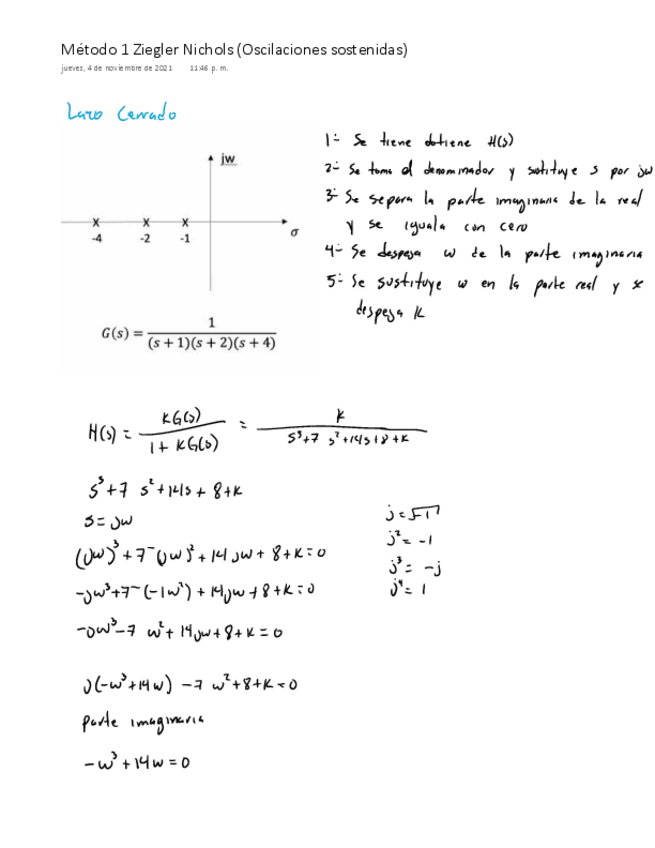 Método 1 Ziegler Nichols (Oscilaciones sostenidas)
jueves, 4 de noviembre de 2021 11:46 p. m.
Lazo Cerrado
jw
σ
-4 -2 -1
G(s) = 1 / ((s + 1)(s + 2)(s + 4))
1- Se tiene obtiene H(s)
2- Se toma el denominador y sutituye s por jw
3- Se separa la parte imaginaria de la real
y se iguala con cero
4- Se despeja w de la parte imaginaria
5- Se sustituye w en la parte real y se
despeja K
H(s) = KG(s) / (1 + KG(s)) = K / (s³+7 s²+14s+8+K)
s³+7 s²+14s+8+K
s = jw
(jw)³+7-(jw)²+14jw+8+K=0
-jw³+7-(-1w²)+14jw+8+K=0
-jw³-7 w²+14jw+8+K=0
j(-w³+14w) -7 w²+8+K=0
parte imaginaria
-w³+14w=0
j=√-1
j²= -1
j³= -j
j⁴= 1